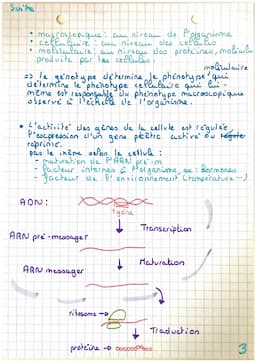 Suite
• macroscopique : au niveau de l'organisme
• cellulaire : au niveau des cellules
• moléculaire : au niveau des protéines, molécules
produite par les cellules.
moléculaire
=> le génotype détermine le phénotype qui
détermine le phénotype cellulaire qui lui-
même est responsable du phénotype macroscopique
observé à l'échelle de l'organisme.
• L'activité des gènes de la cellule est régulée
l'expression d'un gène peut être activé ou
réprimé.
pas le même selon la cellule :
- maturation de l'ARN pré-m
- facteur internes à l'organisme, ex : hormones
- facteur de l'environnement (température...)
ADN :
1 gène
Transcription
ARN pré-messager
Maturation
ARN messager
ribosome
Traduction
protéine
3